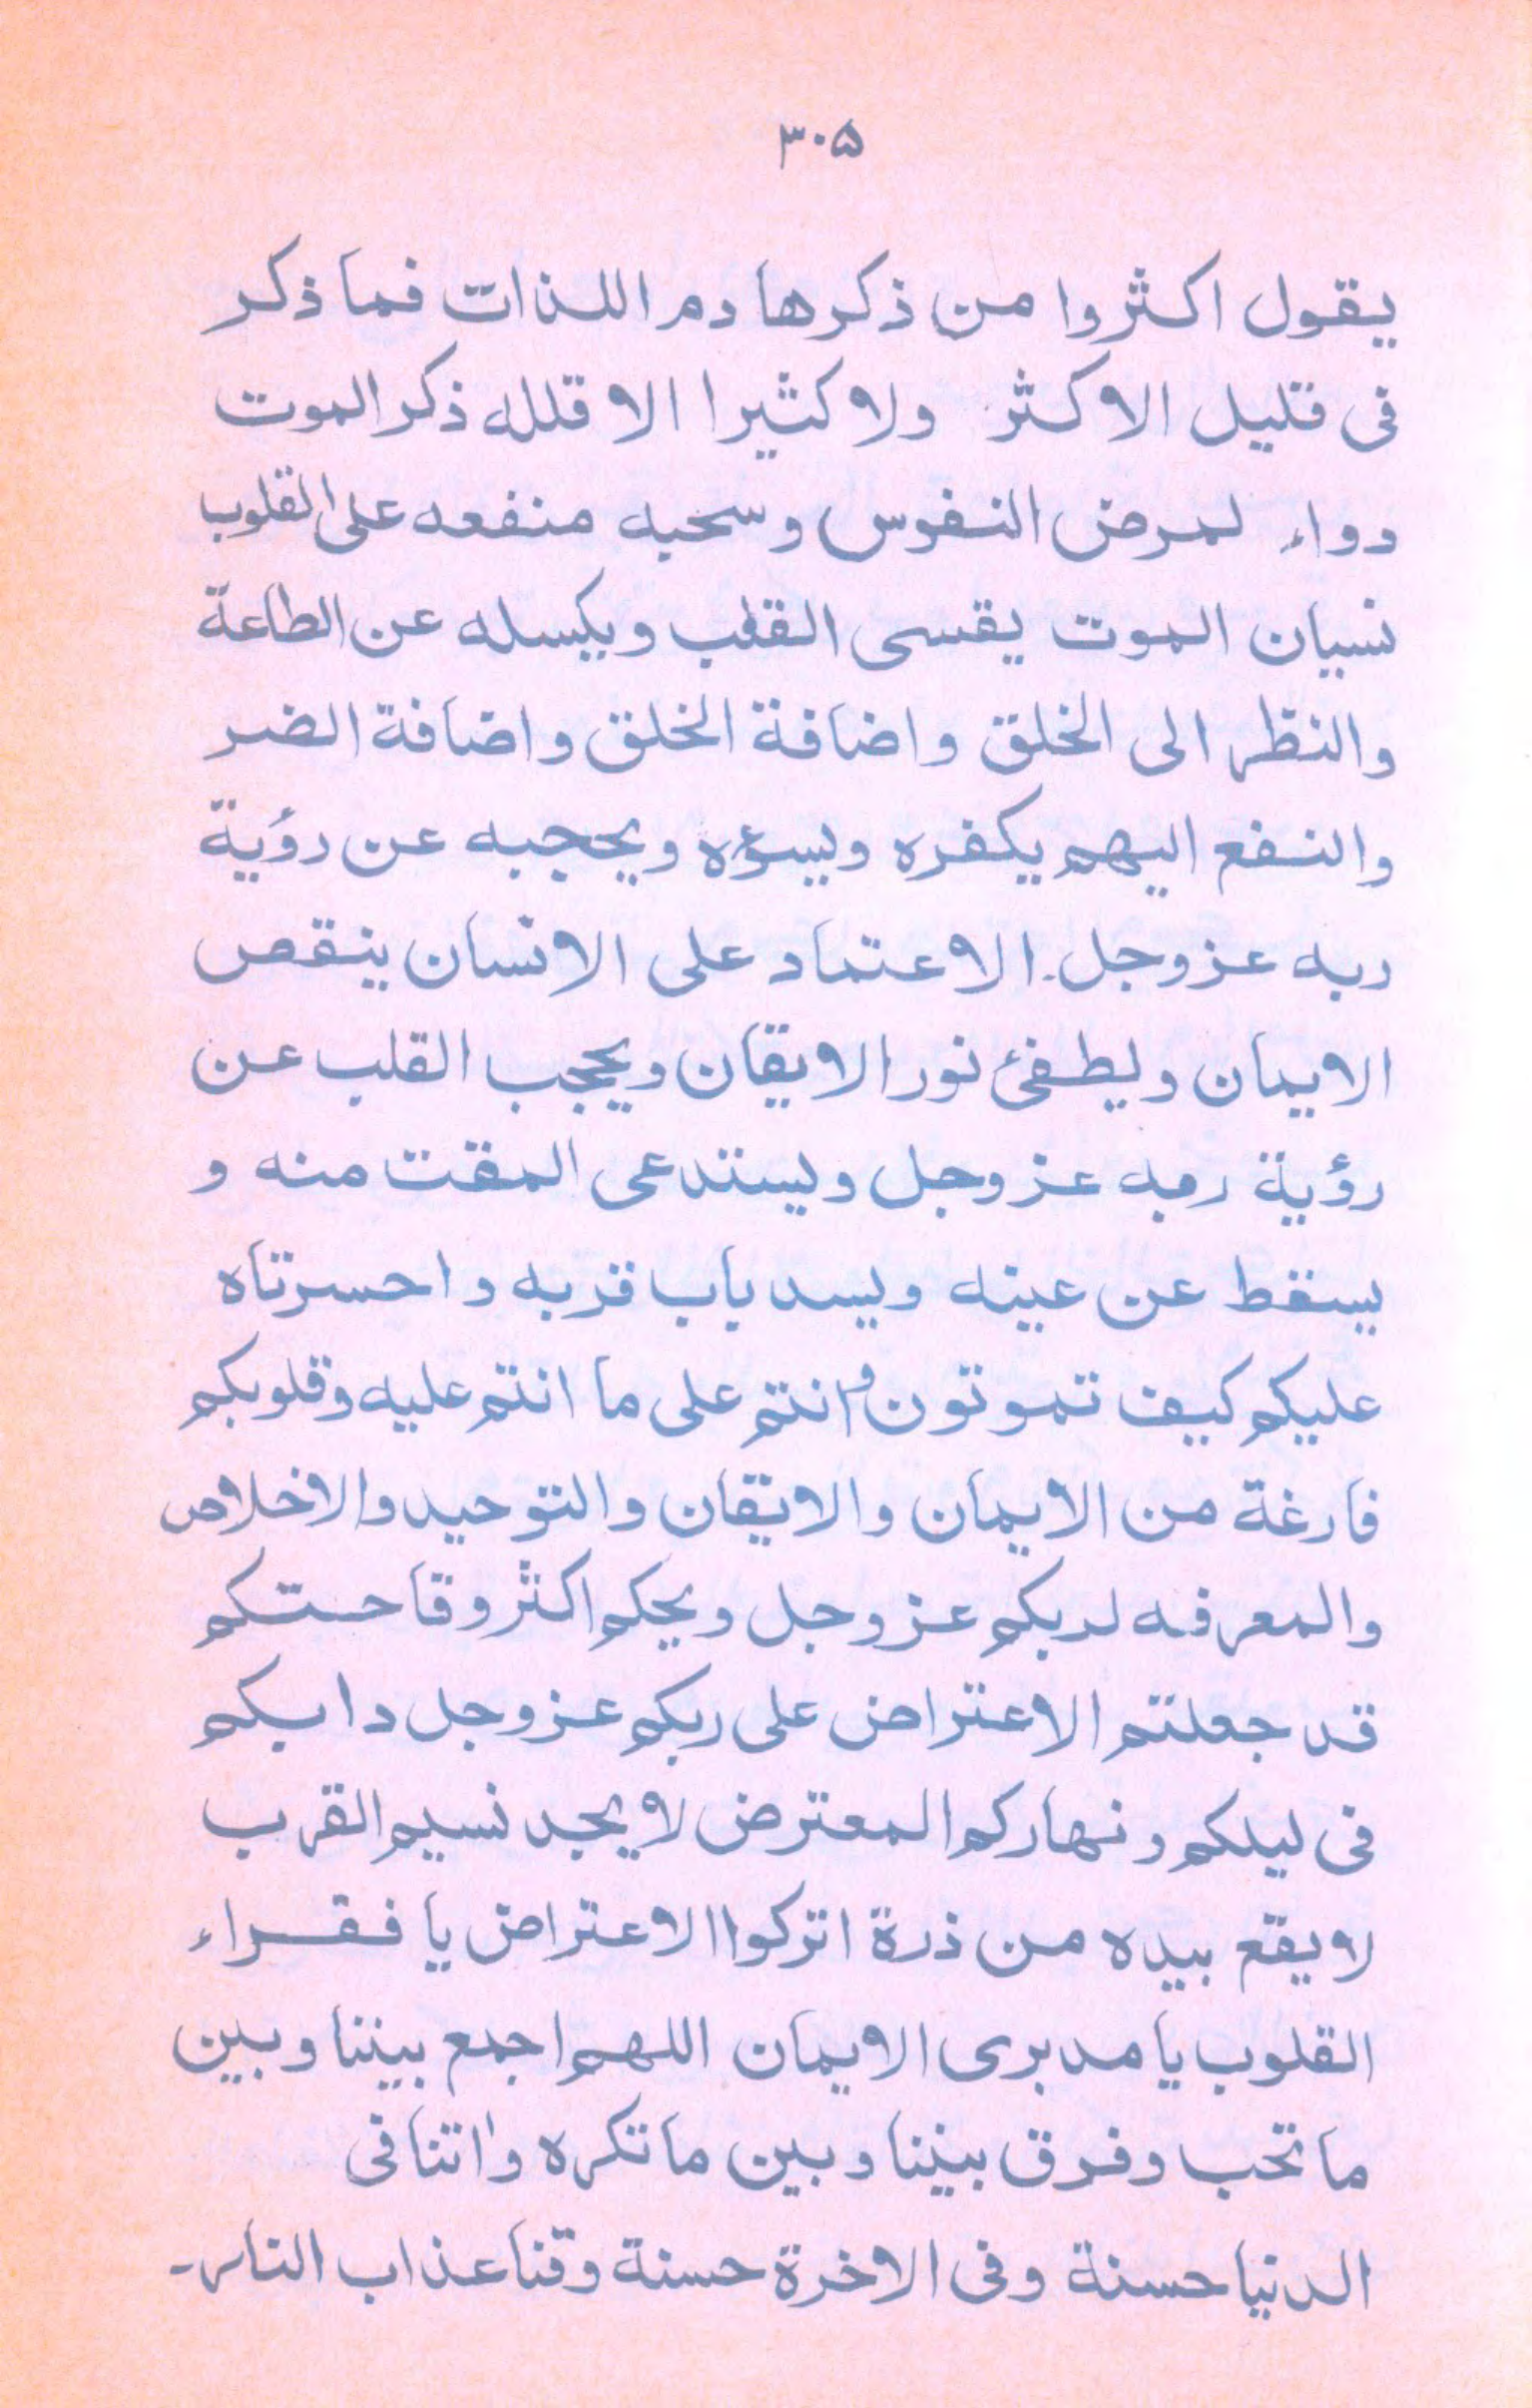 ۳۰۵
يقول اكثروا من ذكرها دم اللذات فما ذكر
فى قليل الا كثر ولا كثيرا الا قلله ذكر الموت
دواء لمرض النفوس وسحبه منفعه على القلوب
نسيان الموت يقسى القلب ويكسله عن الطاعة
والنظر الى الخلق واضافة الخلق واضافة الضر
والنفع اليهم يكفره ويسوءه ويحجبه عن رؤية
ربه عز وجل. الاعتماد على الانسان ينقص
الايمان ويطفئ نور الايقان ويحجب القلب عن
رؤية ربه عز وجل ويستدعى المقت منه و
يسقط عن عينه ويسد باب قربه واحسرتاه
عليكم كيف تموتون وانتم على ما انتم عليه وقلوبكم
فارغة من الايمان والايقان والتوحيد والاخلاص
والمعرفه لربكم عز وجل ويحكم اكثر وقاحستكم
قد جعلتم الاعتراض على ربكم عز وجل دابكم
فى ليلكم ونهاركم المعترض لا يجد نسيم القرب
لا يقع بيده من ذرة اتركوا الاعتراض يا فقراء
القلوب يا مدبرى الايمان اللهم اجمع بيننا وبين
ما تحب وفرق بيننا وبين ما تكره واتنا فى
الدنيا حسنة وفى الاخرة حسنة وقنا عذاب النار۔